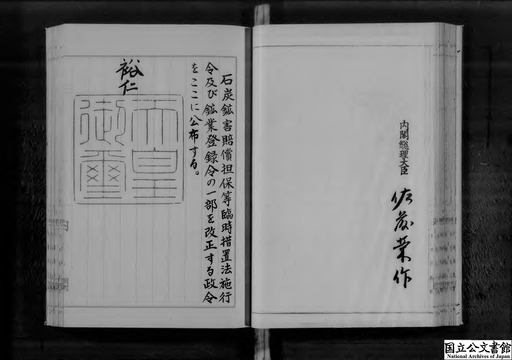 石炭鉱害賠償担保等臨時措置法施行
令及び鉱業登録令の一部を改正する政令
をここに公布する。
裕仁
天皇
御璽
内閣総理大臣
佐藤栄作
国立公文書館
National Archives of Japan